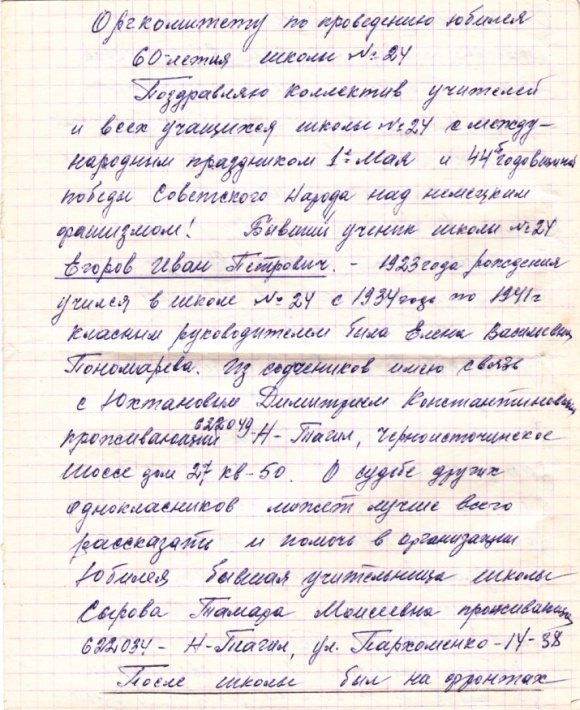 Оргкомитету по проведению юбилея
60-летия школы № 24
Поздравляю коллектив учителей
и всех учащихся школы № 24 с между-
народным праздником 1ᵒᵉ Мая и 44ᵒᵉ годовщиной
победы Советского Народа над немецким
фашизмом! Бывший ученик школы № 24
Егоров Иван Петрович. - 1923 года рождения
учился в школе № 24 с 1934 года по 1941 г
класным руководителем была Елена Васильевна
Пономарева. Из соучеников имею связь
с Юхтановым Димитрием Константиновичем
622049
проживающий Н-Тагил, Черноисточинское
шоссе дом 27 кв-50. О судьбе других
однокласников может лучше всего
рассказать и помочь в организации
юбилея бывшая учительница школы
Сырова Тамара Моисеевна проживающая
622034 - Н-Тагил, ул. Пархоменко-14-38
После школы был на фронтах